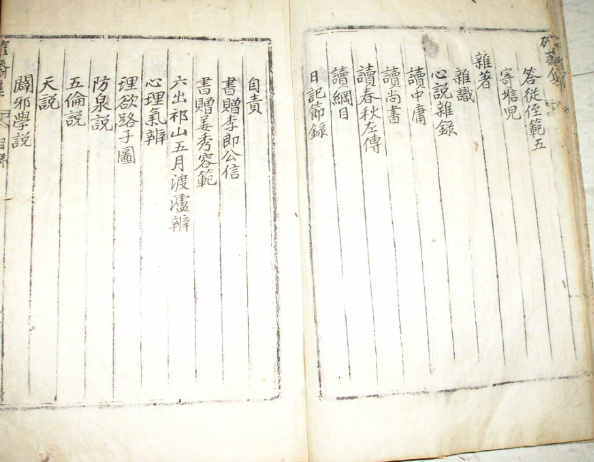 答從侄範五
寄牿児
雜著
雜識
心説雜録
讀中庸
讀尚書
讀春秋左傳
讀綱目
日記節錄
自責
書贈李卽公信
書贈姜秀容範
六出祁山五月渡瀘辨
心理氣辨
理欲路子圖
防泉説
五倫説
天説
闢邪學説